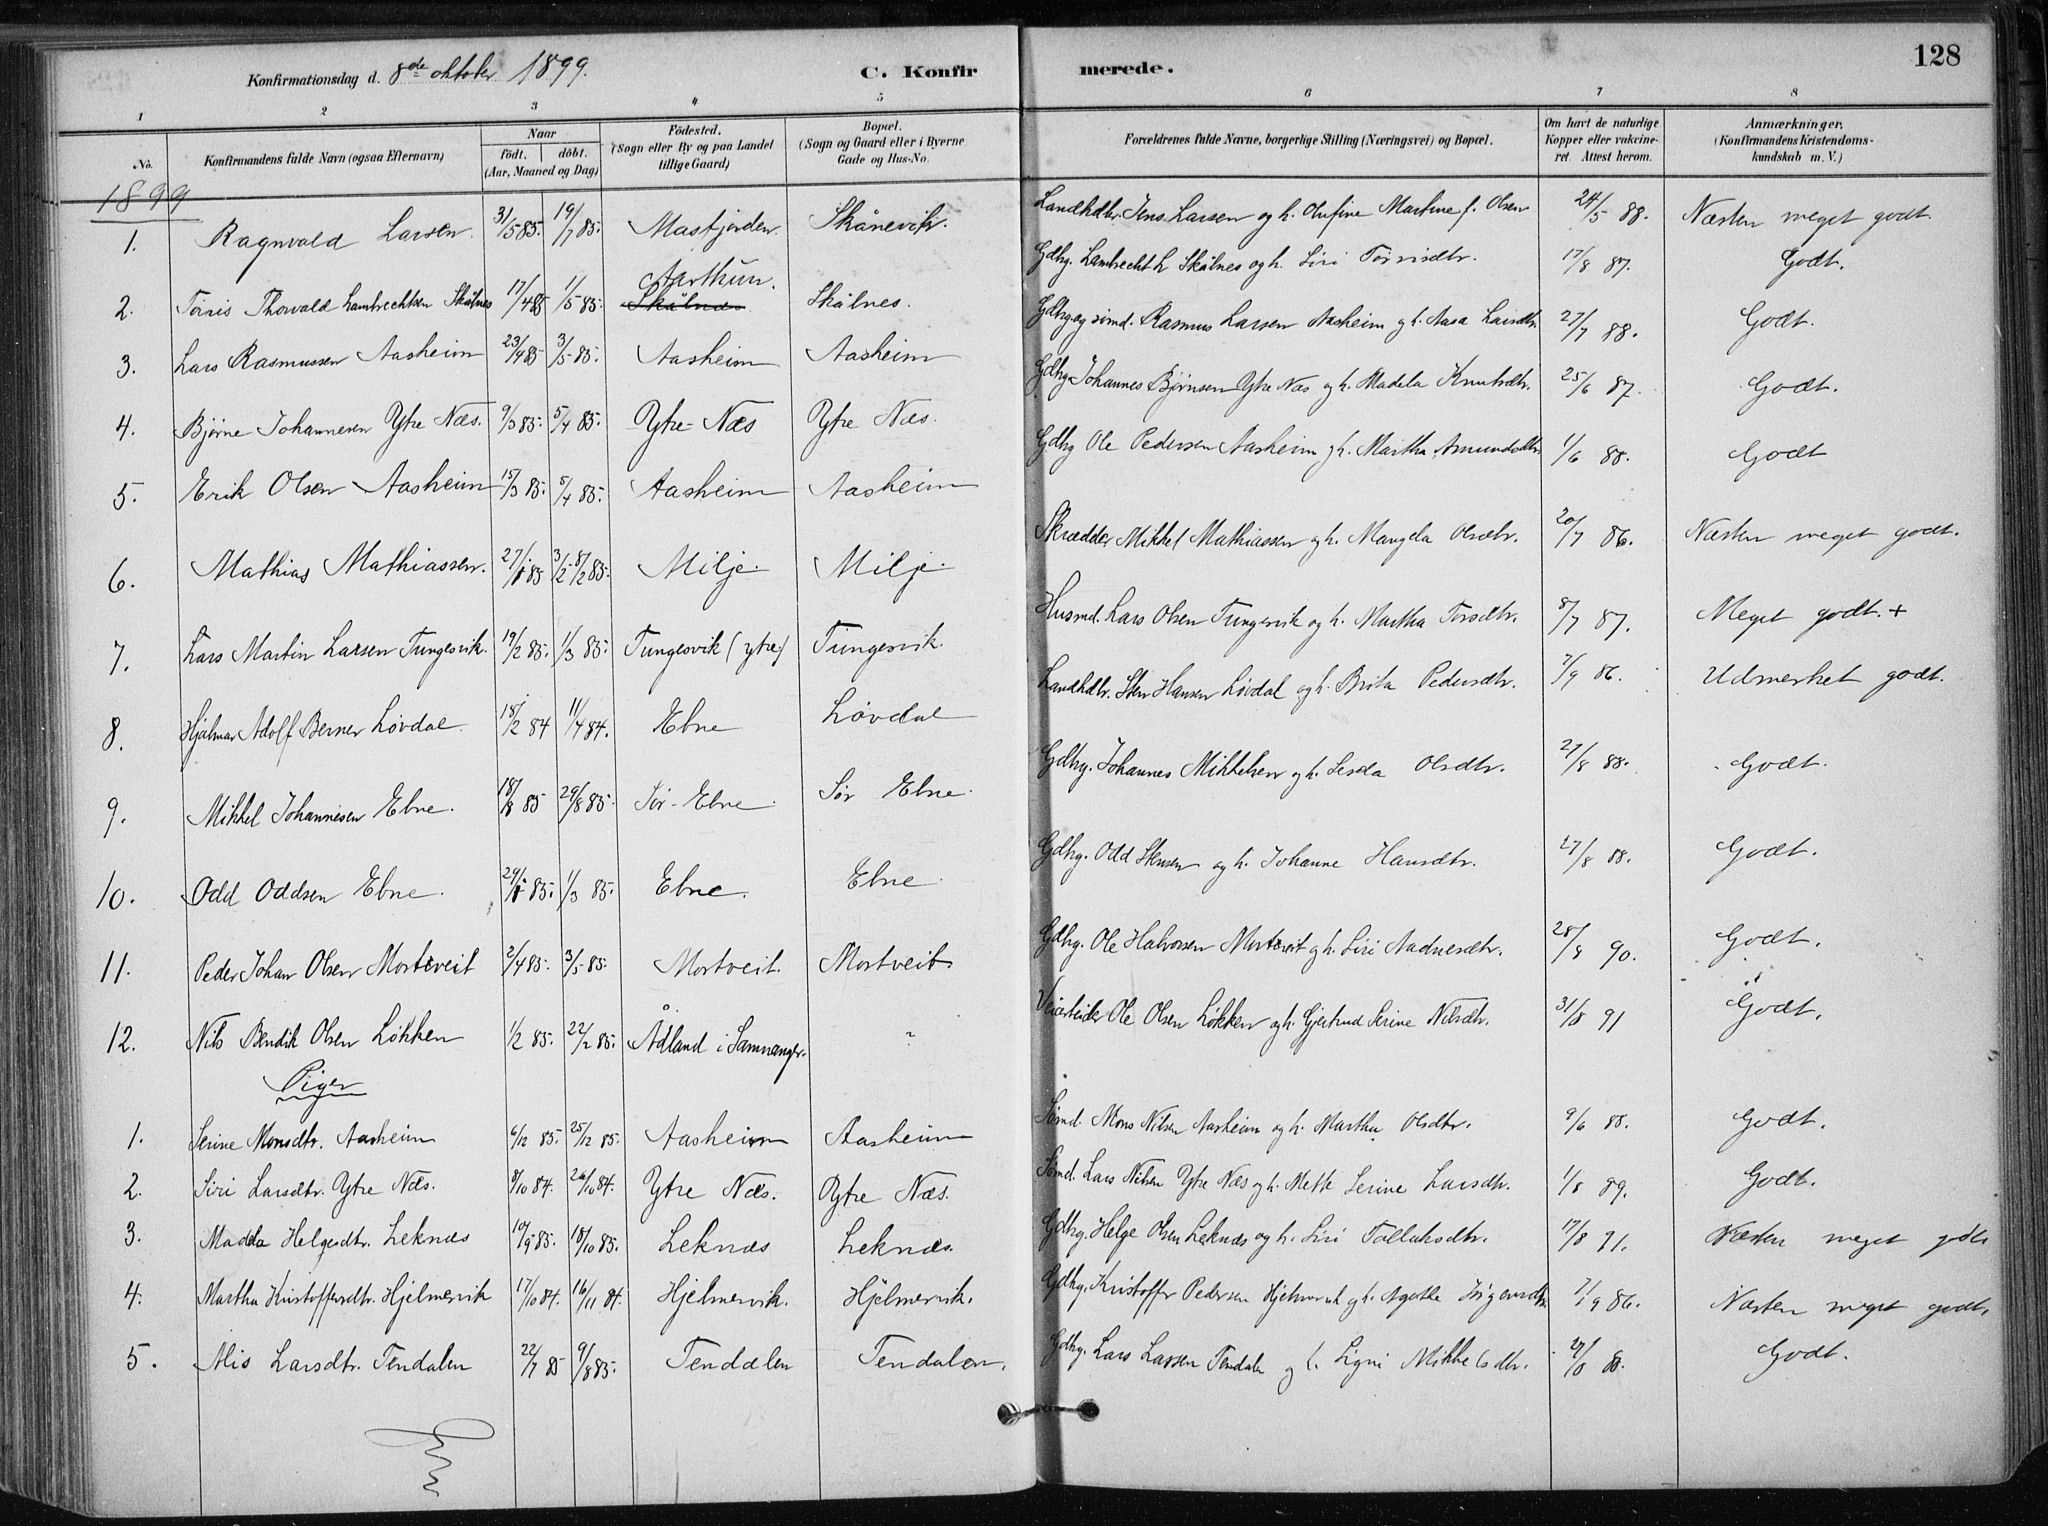 Konfirmationsdag d. 8de oktober 1899. C. Konfirmerede. 128
1 2 3 4 5 6 7 8
No. Konfirmandens fulde Navn (ogsaa Efternavn) Naar födt. döbt. (Aar, Maaned og Dag) Födested. (Sogn eller By og paa Landet tillige Gaard) Bopæl. (Sogn og Gaard eller i Byerne Gade og Hus-No. Forældrenes fulde Navne, borgerlige Stilling (Næringsvei) og Bopæl. Om havt de naturlige Kopper eller vakcineret. Attest herom. Anmærkninger, (Konfirmandens Kristendomskundskab m. V.)
1899
1. Ragnvald Larsen. 31/5 85. 19/7 85. Masfjorden Skånevik. Landhdlr. Jens Larsen og h. Olufine Martine f. Olsen 24/5 88. Næsten meget godt.
2. Tørris Thorvald Lambrechtsen Skålnes 17/4 85 1/5 85. Aarthun. Skålnes Skålnes. Gdbg. Lambrecht L Skålnes og h. Siri Torrisdtr. 17/8 87. Godt.
3. Lars Rasmussen Aasheim 23/4 85 3/5 85. Aasheim Aasheim Gdbg. og sömd. Rasmus Larsen Aasheim og h. Aasa Larsdtr. 27/7 88. Godt.
4. Bjørne Johannesen Ytre Næs. 9/3 85. 5/4 85. Ytre-Næs Ytre Næs. Gdbg Johannes Bjørnsen Ytre Næs og h. Madela Knutsdtr. 25/6 87. Godt.
5. Erik Olsen Aasheim 15/3 85. 5/4 85. Aasheim Aasheim Gdbg Ole Pedersen Aasheim og h. Martha Amundsdtr. 1/6 88. Godt
6. Mathias Mathiassen. 27/1 85 3/2 8/2 85. Milje. Milje. Skrædder Mikkel Mathiassen og h. Mangela Olsdtr. 20/7 86. Næsten meget godt.
7. Lars Martin Larsen Tungesvik. 19/2 85. 1/3 85. Tungesvik (ytre) Tungesvik. Husmd. Lars Olsen Tungesvik og h. Martha Torsdtr. 8/7 87. Meget godt. +
8. Hjalmar Adolf Berner Løvdal. 18/2 84 11/4 84. Ebne Løvdal Landhdlr. Sten Hansen Løvdal og h. Brita Pedersdtr. 7/9 86. Udmerket godt.
9. Mikkel Johannesen Ebne. 18/8 85 29/8 85. Sør-Ebne. Sør Ebne. Gdbg. Johannes Mikkelsen og h. Olsdtr. 27/8 88. Godt.
10. Odd Oddsen Ebne. 29/1 85. 1/3 85. Ebne. Ebne Gdbg. Odd Stensen og h. Johanne Hansdtr. 27/8 88. Godt.
11. Peder Johan Olsen Mortveit 2/4 85. 3/5 85. Mortveit. Mortveit Gdbg. Ole Halvorsen Mortveit og h. Siri Aadnesdtr. 28/8 90. Godt.
12. Nils Bendik Olsen Løkken 1/2 85. 22/2 85. Ådland i Samnanger. " Veiarbeider Ole Olsen Løkken og h. Gjertrud Serine Nilsdtr. 31/8 91 Godt.
Piger
1. Serine Monsdtr. Aasheim 6/12 85. 25/12 85. Aasheim Aasheim Sømd. Mons Nilsen Aasheim og h. Martha Olsdtr. 9/6 88. Godt.
2. Siri Larsdtr. Ytre Næs. 8/10 84. 26/10 84. Ytre Næs. Ytre Næs. Sømd. Lars Nilsen Ytre Næs og h. Mette Serine Larsdtr. 1/8 89. Godt.
3. Madela Helgesdtr. Leknæs 10/9 85. 18/10 85. Leknæs Leknæs. Gdbg. Helge Olsen Leknæs og h. Siri Tollaksdtr. 17/8 91. Næsten meget godt
4. Martha Kristoffersdtr. Hjelmervik 17/10 84. 16/11 84. Hjelmervik. Hjelmervik. Gdbg. Kristoffer Pedersen Hjelmervik og h. Agatha 7/9 86. Næsten meget godt,
5. Alis Larsdtr. Tendalen 22/7 85 9/8 85. Tendalen Tendalen. Gdbg. Lars Larsen Tendale og h. Signi Mikkelsdtr. 88. Godt.